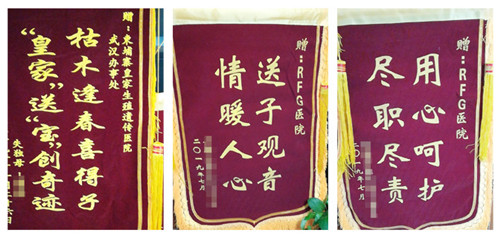 赠：柬埔寨皇家生殖遗传医院
武汉办事处
枯木逢春喜得子
“皇家”送“宝”创奇迹
失独母：
赠：RFG医院
送子观音
情暖人心
二〇一九年七月
赠：RFG医院
用心呵护
尽职尽责
二〇一九年七月